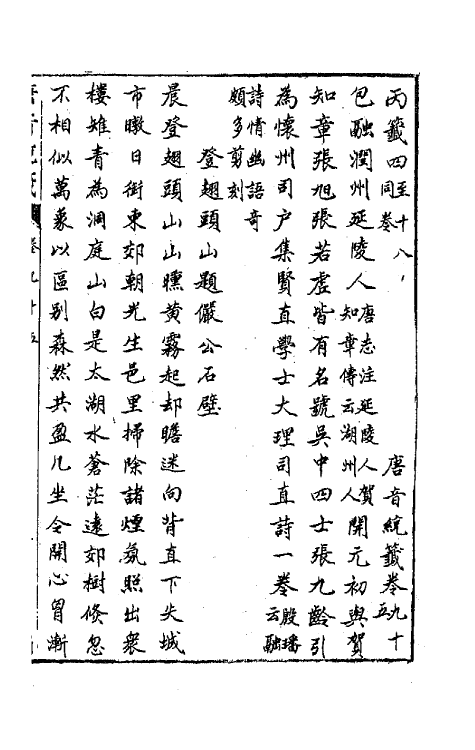 丙籤四至十八同卷 唐音統籤卷九十五
包融潤州延陵人唐志注延陵人賀知章傳云湖州人開元初與賀
知章張旭張若虛皆有名號吳中四士張九齡引
為懷州司户集賢直學士大理司直詩一卷殷璠云融
詩情幽語奇頗多剪刻
登翅頭山題儼公石壁
晨登翅頭山山曛黄霧起却瞻迷向背直下失城
市曒日銜東郊朝光生邑里掃除諸煙氛照出衆
樓雉青為洞庭山白是太湖水蒼茫遠郊樹倏忽
不相似萬象以區别森然共盈几坐令開心胷漸
唐音統籤 卷九十五